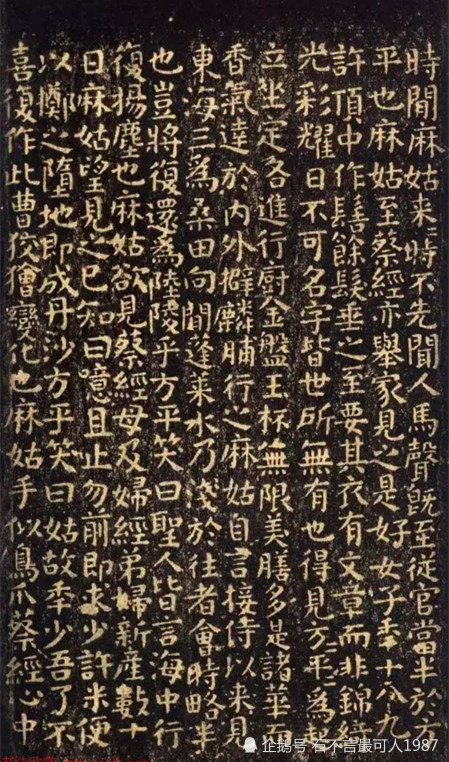 時聞麻姑来時不先聞人馬聲旣至從官當半於方
平也麻姑至蔡經亦舉家見之是好女子年十八九
許頂中作髻餘髮垂之至要其衣有文章而非錦綺
光彩耀日不可名字皆世所無有也得見方平爲起
立坐定各進行廚金盤玉杯無限美膳多是諸華
香氣達於内外擗麟脯行之麻姑自言接侍以来見
東海三爲桑田向間蓬莱水乃淺於往者會時略半
也豈將復還爲陸陵乎方平笑曰聖人皆言海中行
復揚塵也麻姑欲見蔡經母及婦經弟婦新産數十
日麻姑望見之已知曰噫且止勿前即求少許米便
以擲之墮地即成丹沙方平笑曰姑故年少吾了不
喜復作此曹狡獪變化也麻姑手似鳥爪蔡經心中
企鹅号 石不言最可人1987